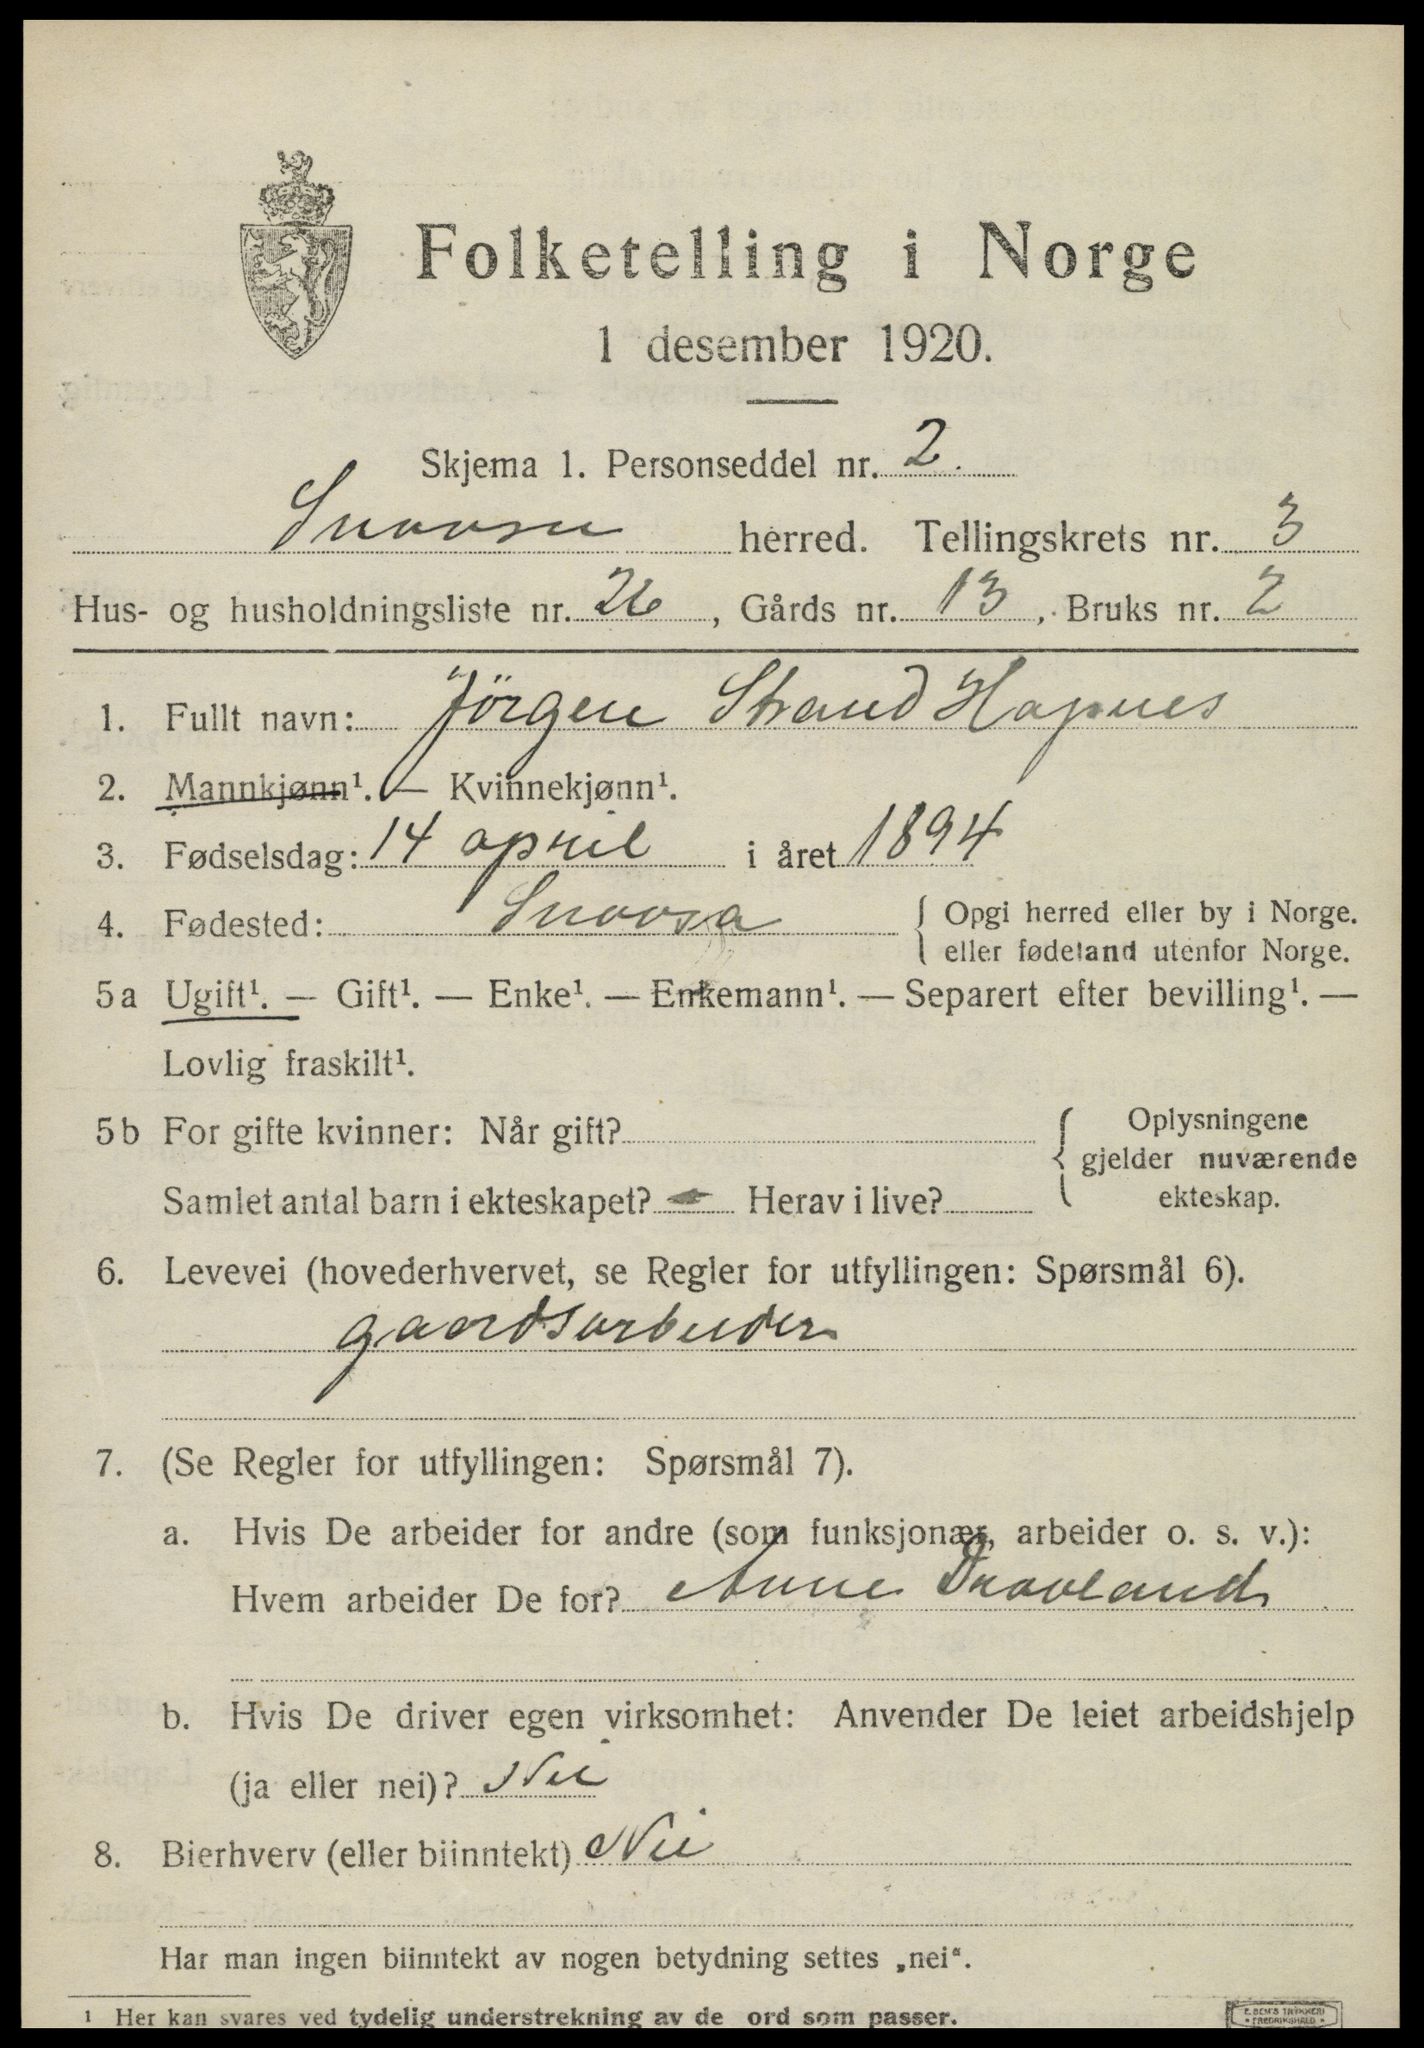 Folketelling i Norge
1 desember 1920.
Skjema 1. Personseddel nr. 2.
Snaasa herred. Tellingskrets nr. 3
Hus- og husholdningsliste nr. 26, Gårds nr. 13, Bruks nr. 2
1. Fullt navn: Jörgen Strand Hapnes
2. Mannkjønn¹. — Kvinnekjønn¹.
3. Fødselsdag: 14 april i året 1894
4. Fødested: Snaasa { Opgi herred eller by i Norge.
eller fødeland utenfor Norge.
5a Ugift¹. — Gift¹. — Enke¹. — Enkemann¹. — Separert efter bevilling¹. —
Lovlig fraskilt¹.
5b For gifte kvinner: Når gift? { Oplysningene
gjelder nuværende
ekteskap.
Samlet antal barn i ekteskapet? — Herav i live?
6. Levevei (hovederhvervet, se Regler for utfyllingen: Spørsmål 6).
gaardsarbeider
7. (Se Regler for utfyllingen: Spørsmål 7).
a. Hvis De arbeider for andre (som funksjonær, arbeider o. s. v.):
Hvem arbeider De for? Anne
b. Hvis De driver egen virksomhet: Anvender De leiet arbeidshjelp
(ja eller nei)? Nei
8. Bierhverv (eller biinntekt) Nei
Har man ingen biinntekt av nogen betydning settes „nei“.
¹ Her kan svares ved tydelig understrekning av de ord som passer.
E. SEM'S TRYKKERI
FREDRIKSHALD